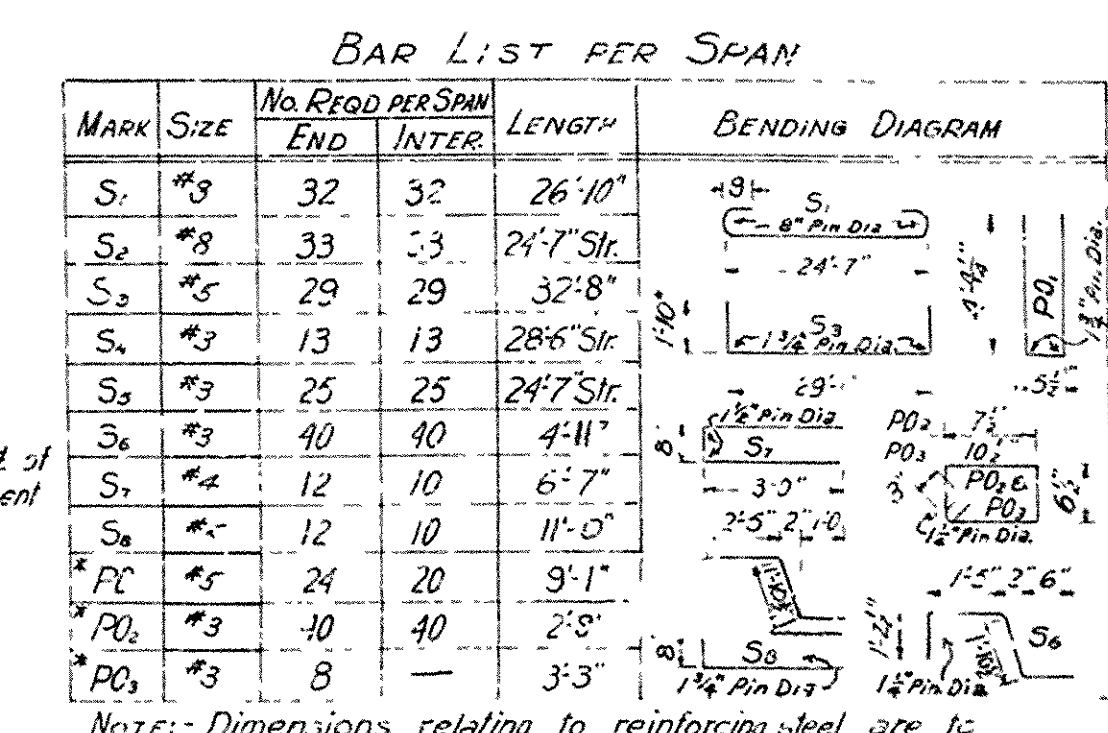 BAR LIST PER SPAN
MARK SIZE No. REQD PER SPAN LENGTH BENDING DIAGRAM
END INTER.
S1 32 32 26'-10"
S2 #8 33 33 24'-7" Str.
S3 #5 29 29 32'-8"
S4 #3 13 13 28'-6" Str.
S5 #3 25 25 24'-7" Str.
S6 #3 40 40 4'-11"
S7 #4 12 10 6'-7"
S8 12 10
* #5 24 20 9'-1"
* PO2 #3 40 40
* PO3 #3 8 — 3'-3"
S1
8" Pin Dia
24'-7"
1'-10"
S3
1 3/4" Pin Dia.
PO1
1 3/4" Pin. Dia.
5 1/2"
1 1/2" Pin Dia
8" S7
3'-0"
PO2 7 1/2"
PO3 10 1/2"
PO2 &
PO3
6 1/2"
1 1/4" Pin Dia.
2'-5" 2" 1'-0
8" S8
1 3/4" Pin Dia
1'-5" 2" 6"
1'-2 1/4"
S6
1 1/4" Pin Dia
of
NOTE:- Dimensions relating to reinforcing steel are to